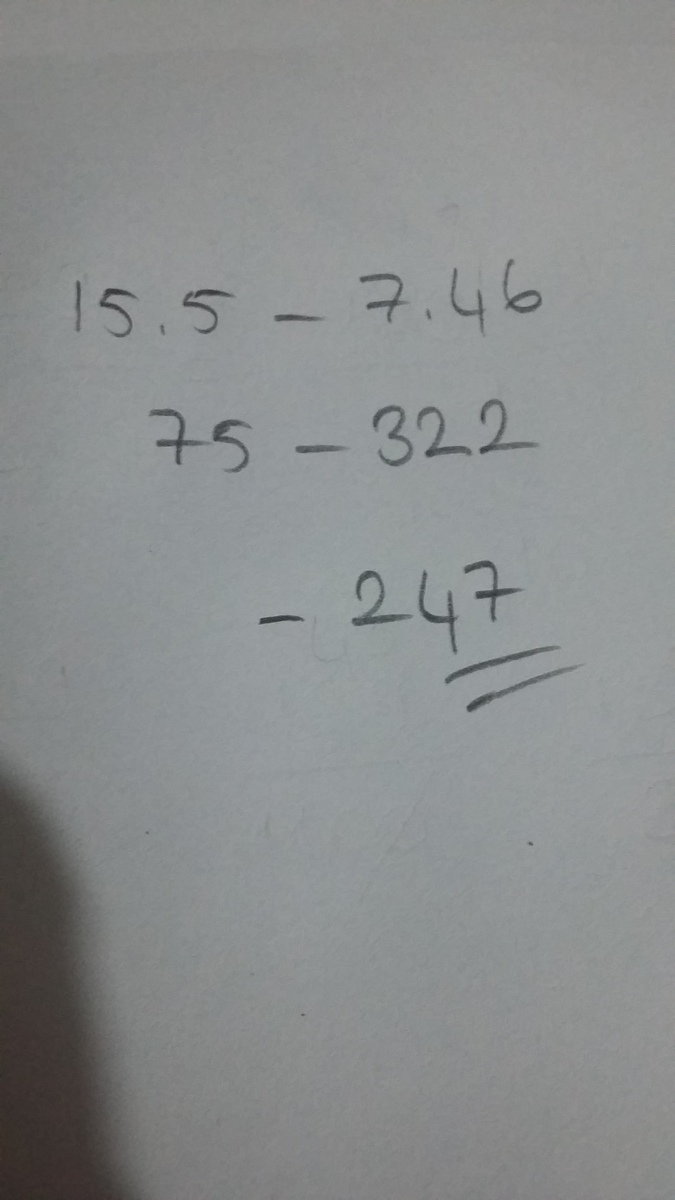 15.5 - 7.46
75 - 322
- 247